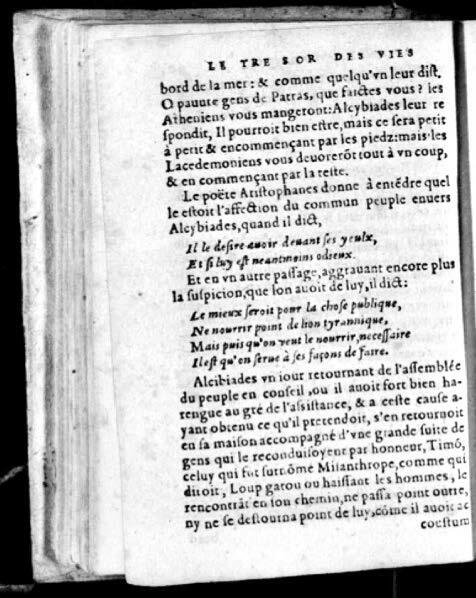 LE TRESOR DES VIES
bord de la mer: & comme quelqu'vn leur dist.
O pauure gens de Patras, que faictes vous? les
Atheniens vous mangeront: Alcybiades leur re
spondit, Il pourroit bien estre, mais ce sera petit
à petit & encommençant par les piedz: mais les
Lacedemoniens vous deuorerõt tout à vn coup,
& en commençant par la teste.
Le poëte Aristophanes donne à entẽdre quel
le estoit l'affection du commun peuple enuers
Alcybiades, quand il dict,
Il le desire auoir deuant ses yeulx,
Et si luy est neantmoins odieux.
Et en vn autre passage, aggrauant encore plus
la suspicion, que lon auoit de luy, il dict:
Le mieux seroit pour la chose publique,
Ne nourrir point de lion tyrannique,
Mais puis qu'on veut le nourrir, necessaire
Il est qu'on serue à ses façons de faire.
Alcibiades vn iour retournant de l'assemblée
du peuple en conseil, ou il auoit fort bien ha-
rengue au gré de l'assistance, & a ceste cause a-
yant obtenu ce qu'il pretendoit, s'en retournoit
en sa maison accompagné d'vne grande suite de
gens qui le reconduisoyent par honneur, Timõ,
celuy qui fut surnõmé Misanthrope, comme qui
diroit, Loup garou ou haissant les hommes, le
rencontrãt en son chemin, ne passa point outre,
ny ne se destourna point de luy, cõme il auoit ac
coustum